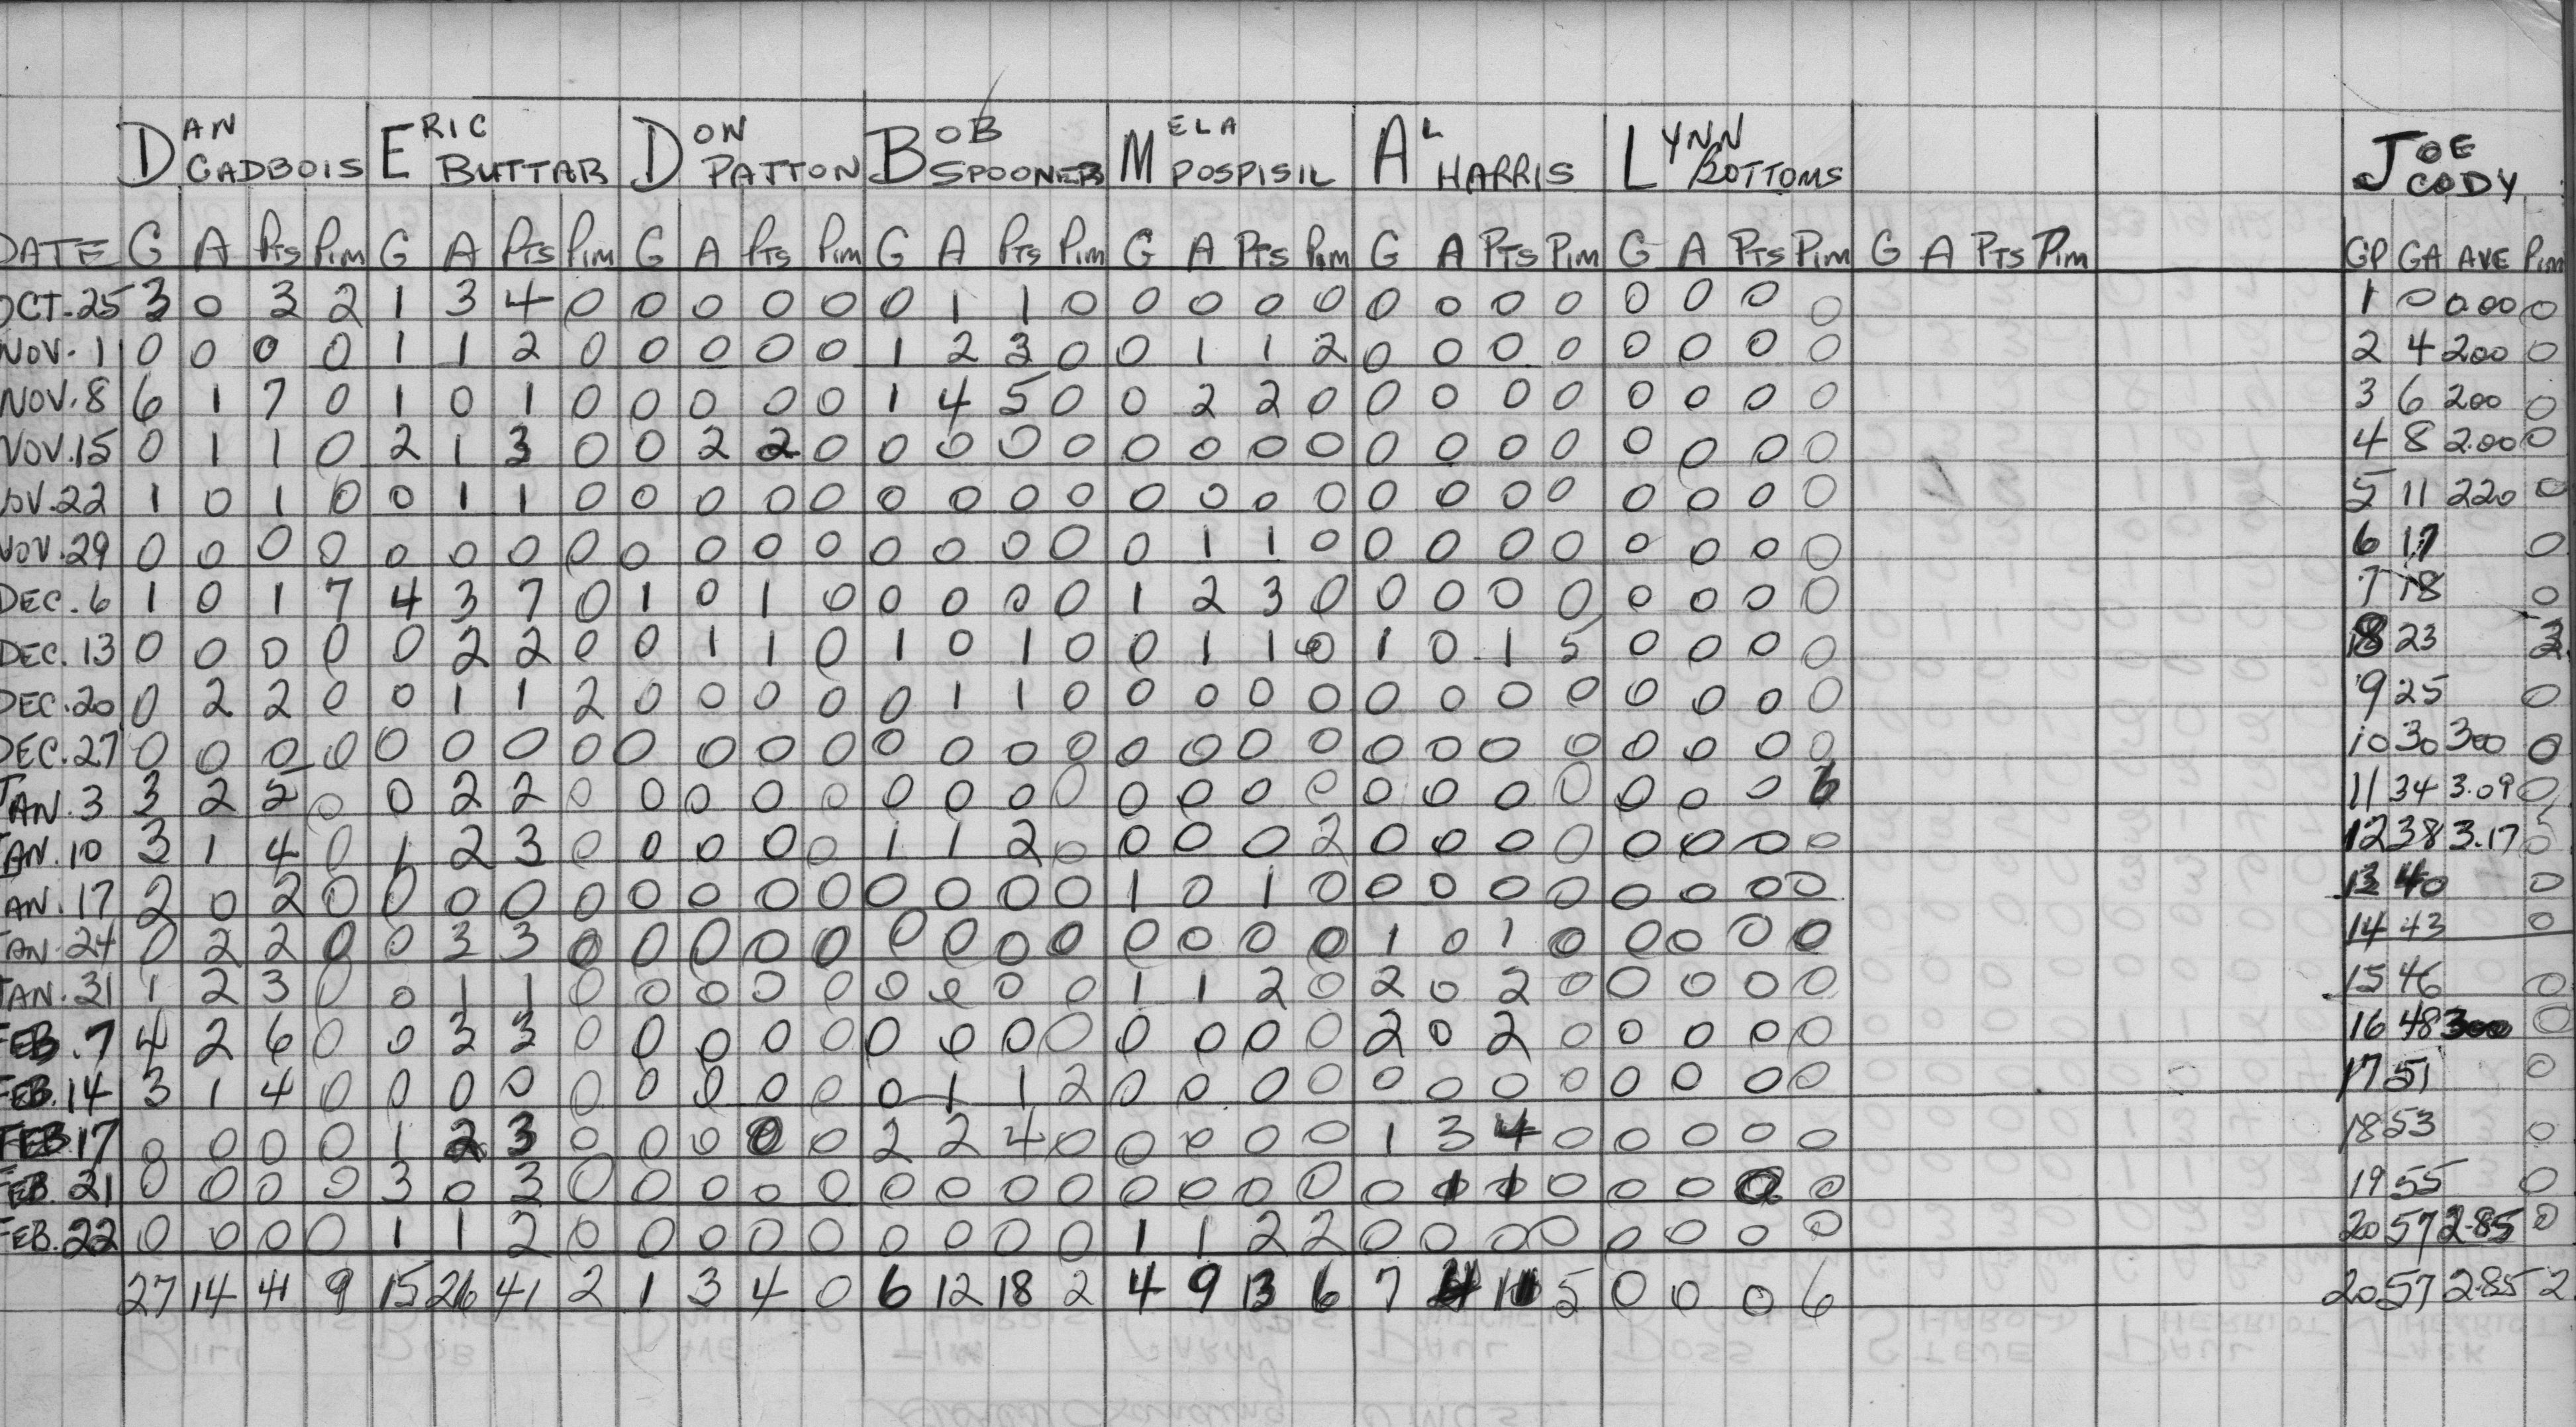 DAN ERIC DON BOB MELA AL LYNN JOE
CADBOIS BUTTAR PATTON SPOONER POSPISIL HARRIS BOTTOMS CODY
DATE G A PTS PIM G A PTS PIM G A PTS PIM G A PTS PIM G A PTS PIM G A PTS PIM G A PTS PIM G A PTS PIM GP GA AVE PIM
OCT.25 3 0 3 2 1 3 4 0 0 0 0 0 0 1 1 0 0 0 0 0 0 0 0 0 0 0 0 0 1 0 0.00 0
NOV.1 0 0 0 0 1 1 2 0 0 0 0 0 1 2 3 0 0 1 1 2 0 0 0 0 0 0 0 0 2 4 200 0
NOV.8 6 1 7 0 1 0 1 0 0 0 0 0 1 4 5 0 0 2 2 0 0 0 0 0 0 0 0 0 3 6 200 0
NOV.15 0 1 1 0 2 1 3 0 0 2 2 0 0 0 0 0 0 0 0 0 0 0 0 0 0 0 0 0 4 8 2.00 0
NOV.22 1 0 1 0 0 1 1 0 0 0 0 0 0 0 0 0 0 0 0 0 0 0 0 0 0 0 0 0 5 11 220 0
NOV.29 0 0 0 0 0 0 0 0 0 0 0 0 0 0 0 0 0 1 1 0 0 0 0 0 0 0 0 0 6 17 0
DEC.6 1 0 1 7 4 3 7 0 1 0 1 0 0 0 0 0 1 2 3 0 0 0 0 0 0 0 0 0 7 18 0
DEC.13 0 0 0 0 0 2 2 0 0 1 1 0 1 0 1 0 0 1 1 0 1 0 1 5 0 0 0 0 8 23 2
DEC.20 0 2 2 0 0 1 1 2 0 0 0 0 0 1 1 0 0 0 0 0 0 0 0 0 0 0 0 0 9 25 0
DEC.27 0 0 0 0 0 0 0 0 0 0 0 0 0 0 0 0 0 0 0 0 0 0 0 0 0 0 0 0 10 30 300 0
JAN.3 3 2 5 0 0 2 2 0 0 0 0 0 0 0 0 0 0 0 0 0 0 0 0 0 0 0 0 6 11 34 3.09 0
JAN.10 3 1 4 0 1 2 3 0 0 0 0 0 1 1 2 0 0 0 0 2 0 0 0 0 0 0 0 0 12 38 3.17 0
JAN.17 2 0 2 0 0 0 0 0 0 0 0 0 0 0 0 0 1 0 1 0 0 0 0 0 0 0 0 0 13 40 0
JAN.24 0 2 2 0 0 3 3 0 0 0 0 0 0 0 0 0 0 0 0 0 1 0 1 0 0 0 0 0 14 43 0
JAN.31 1 2 3 0 0 1 1 0 0 0 0 0 0 0 0 0 1 1 2 0 2 0 2 0 0 0 0 0 15 46 0
FEB.7 4 2 6 0 0 3 3 0 0 0 0 0 0 0 0 0 0 0 0 0 2 0 2 0 0 0 0 0 16 48 300 0
FEB.14 3 1 4 0 0 0 0 0 0 0 0 0 0 1 1 2 0 0 0 0 0 0 0 0 0 0 0 0 17 51 0
FEB.17 0 0 0 0 1 2 3 0 0 0 0 0 2 2 4 0 0 0 0 0 1 3 4 0 0 0 0 0 18 53 0
FEB.21 0 0 0 0 3 0 3 0 0 0 0 0 0 0 0 0 0 0 0 0 0 1 1 0 0 0 0 0 19 55 0
FEB.22 0 0 0 0 1 1 2 0 0 0 0 0 0 0 0 0 1 1 2 2 0 0 0 0 0 0 0 0 20 57 2.85 0
27 14 41 9 15 26 41 2 1 3 4 0 6 12 18 2 4 9 13 6 7 4 11 5 0 0 0 6 20 57 2.85 2